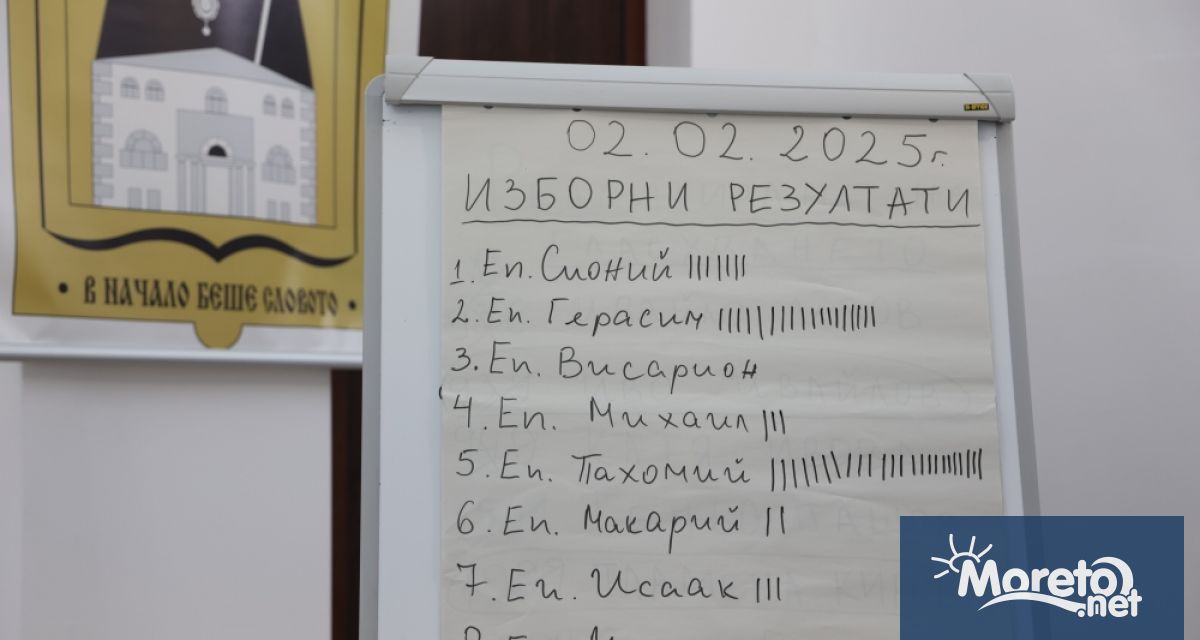 • В НАЧАЛО БЕШЕ СЛОВОТО •
02.02.2025г.
ИЗБОРНИ РЕЗУЛТАТИ
1. Еп. Сионий
2. Еп. Герасим
3. Еп. Висарион
4. Еп. Михаил
5. Еп. Пахомий
6. Еп. Макарий
7. Еп. Исаак
Moreto
.net